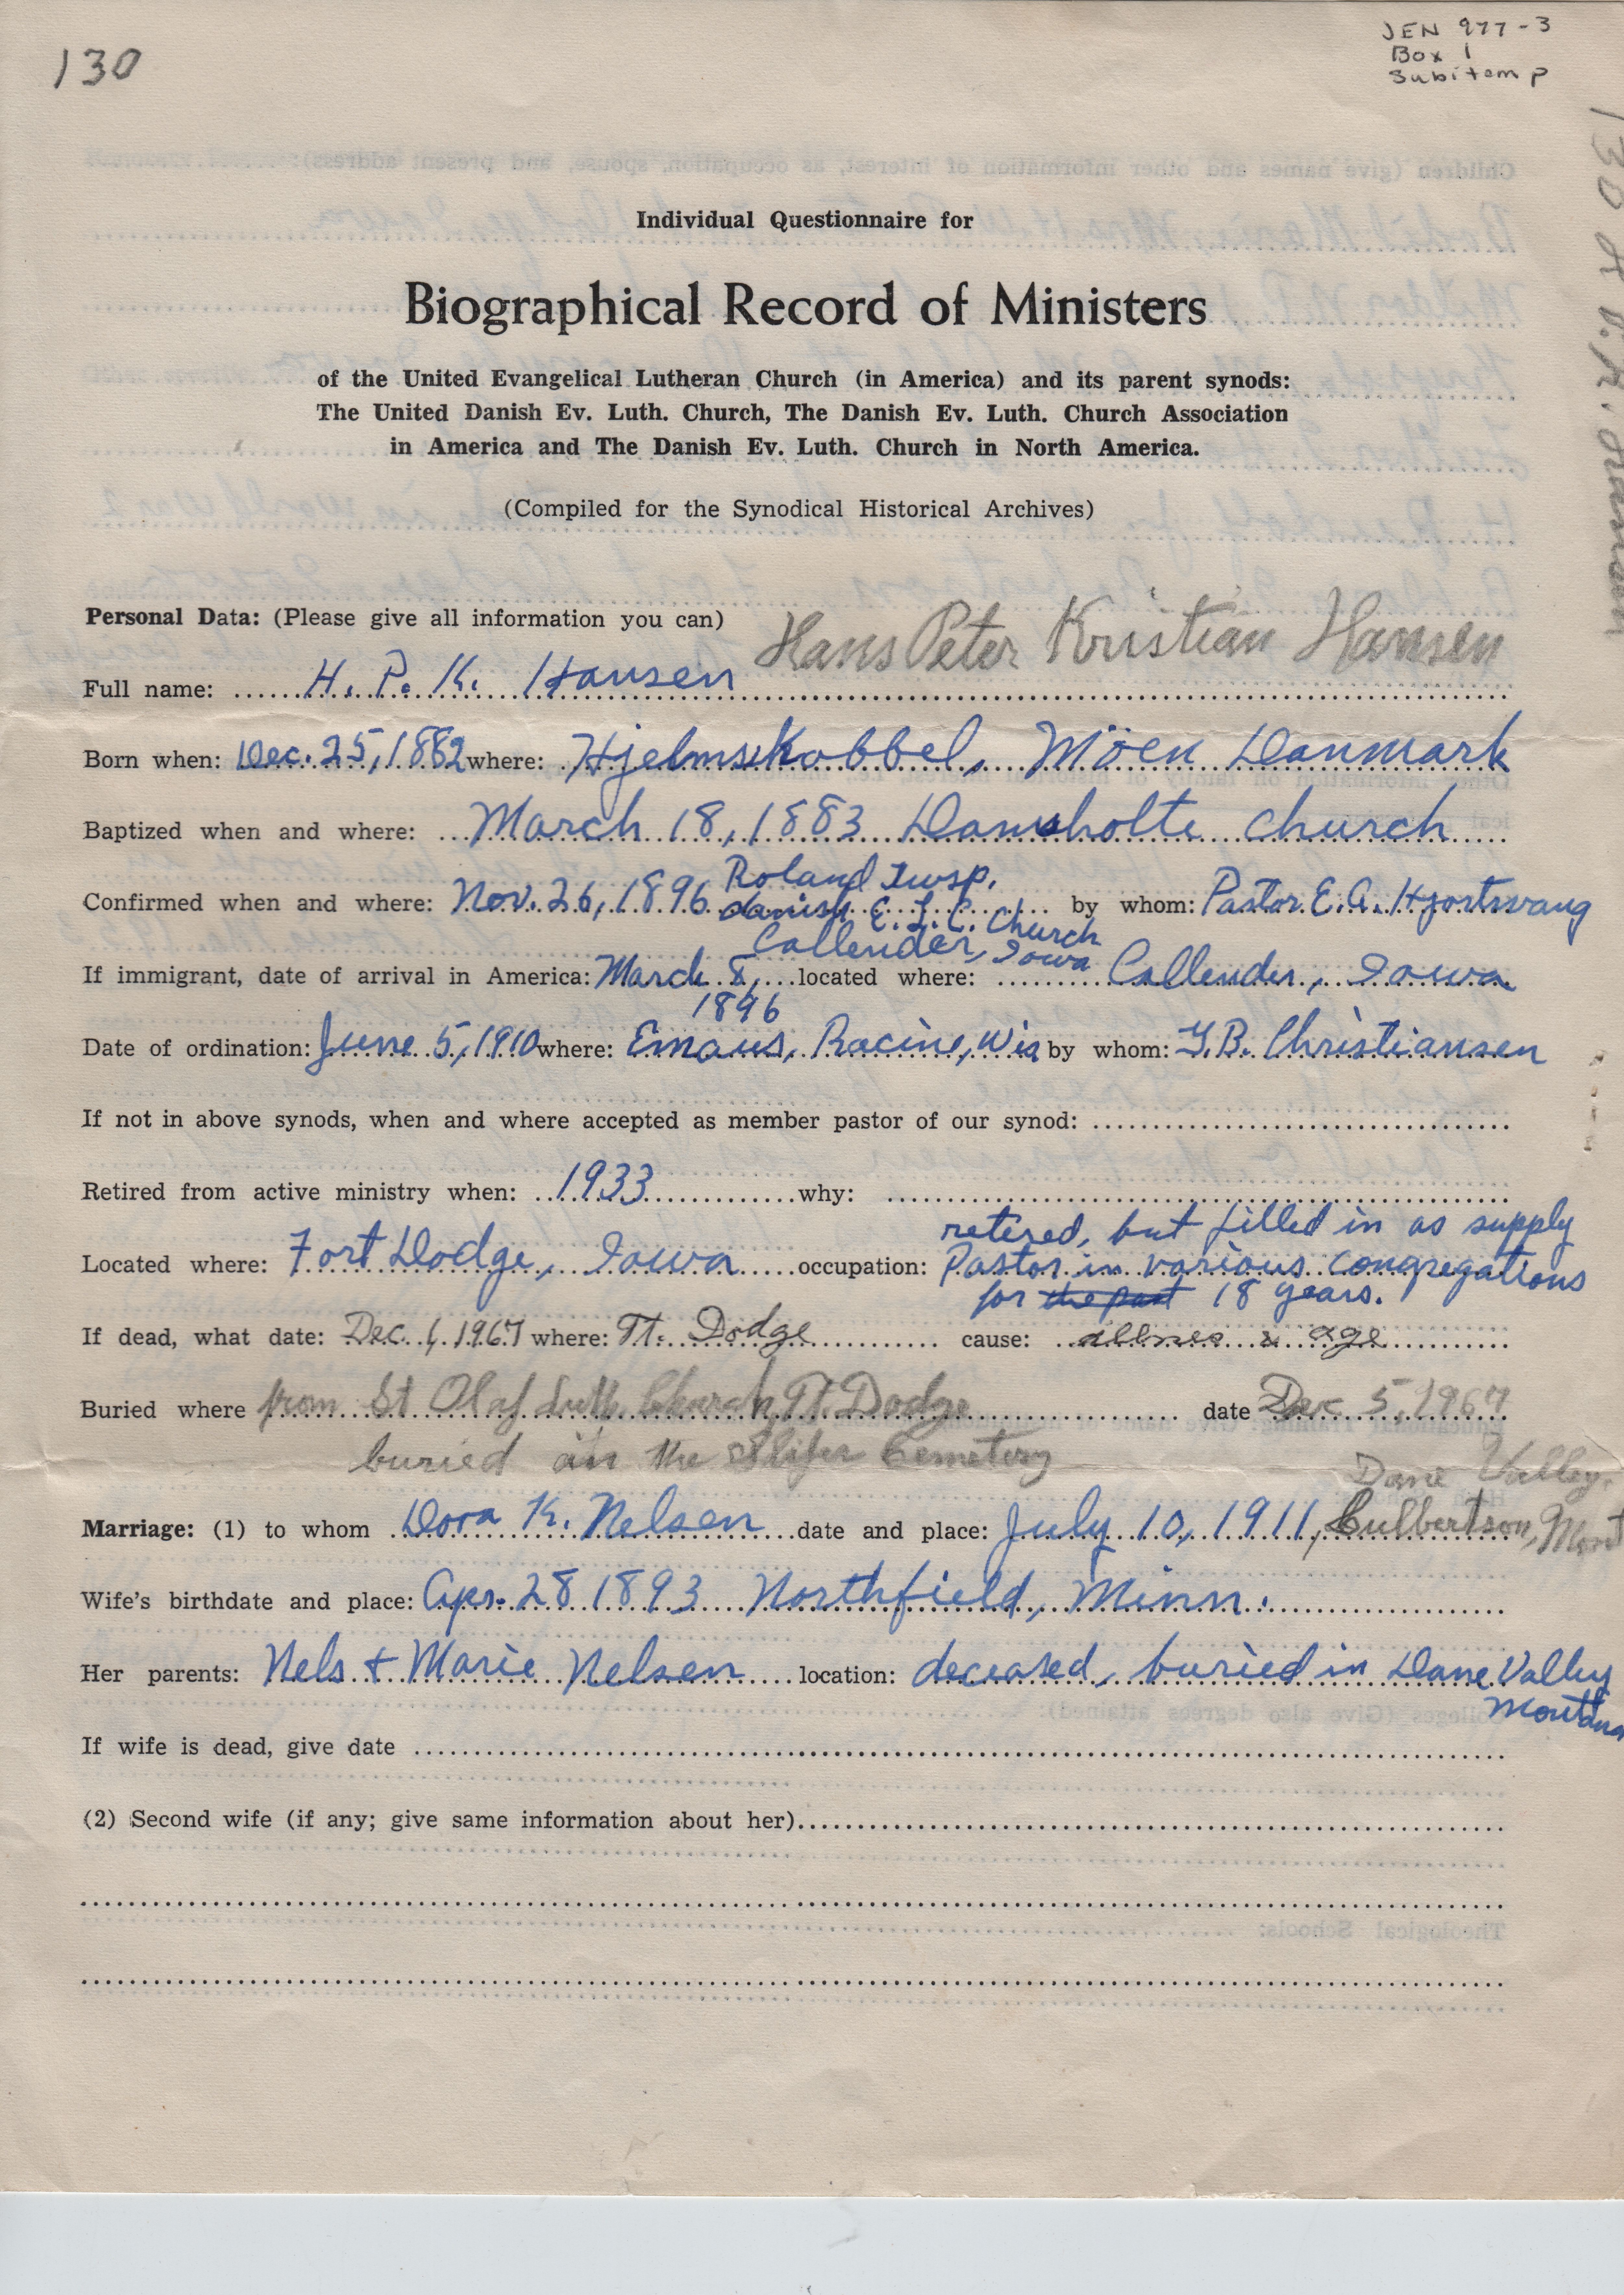 130
JEN 977-3
Box 1
Subitem P
130 H.P.K. Hansen
Individual Questionnaire for
Biographical Record of Ministers
of the United Evangelical Lutheran Church (in America) and its parent synods:
The United Danish Ev. Luth. Church, The Danish Ev. Luth. Church Association
in America and The Danish Ev. Luth. Church in North America.
(Compiled for the Synodical Historical Archives)
Personal Data: (Please give all information you can) Hans Peter Kristian Hansen
Full name: H. P. K. Hansen
Born when: Dec. 25, 1882 where: Hjelmskobbel, Möen Danmark
Baptized when and where: March 18, 1883 Damsholte church
Roland Twsp.
Confirmed when and where: Nov. 26, 1896 danish E. L. C. Church by whom: Pastor E. A. Hjortsvang
Callender, Iowa
If immigrant, date of arrival in America: March 8, located where: Callender, Iowa
1896
Date of ordination: June 5, 1910 where: Emaus, Racine, Wis by whom: G.B. Christiansen
If not in above synods, when and where accepted as member pastor of our synod:
Retired from active ministry when: 1933 why:
retired, but filled in as supply
Located where: Fort Dodge, Iowa occupation: Pastor in various congregations
for the past 18 years.
If dead, what date: Dec. 1, 1967 where: Ft. Dodge cause: illness & age
Buried where from St Olaf Luth. Church, Ft. Dodge date Dec 5, 1967
buried in the Slifer Cemetery
Dane Valley,
Marriage: (1) to whom Dora K. Nelsen date and place: July 10, 1911, Culbertson, Mont
Wife's birthdate and place: Apr. 28 1893 Northfield, Minn.
Her parents: Nels + Marie Nelsen location: deceased, buried in Dane Valley
Montana
If wife is dead, give date
(2) Second wife (if any; give same information about her)